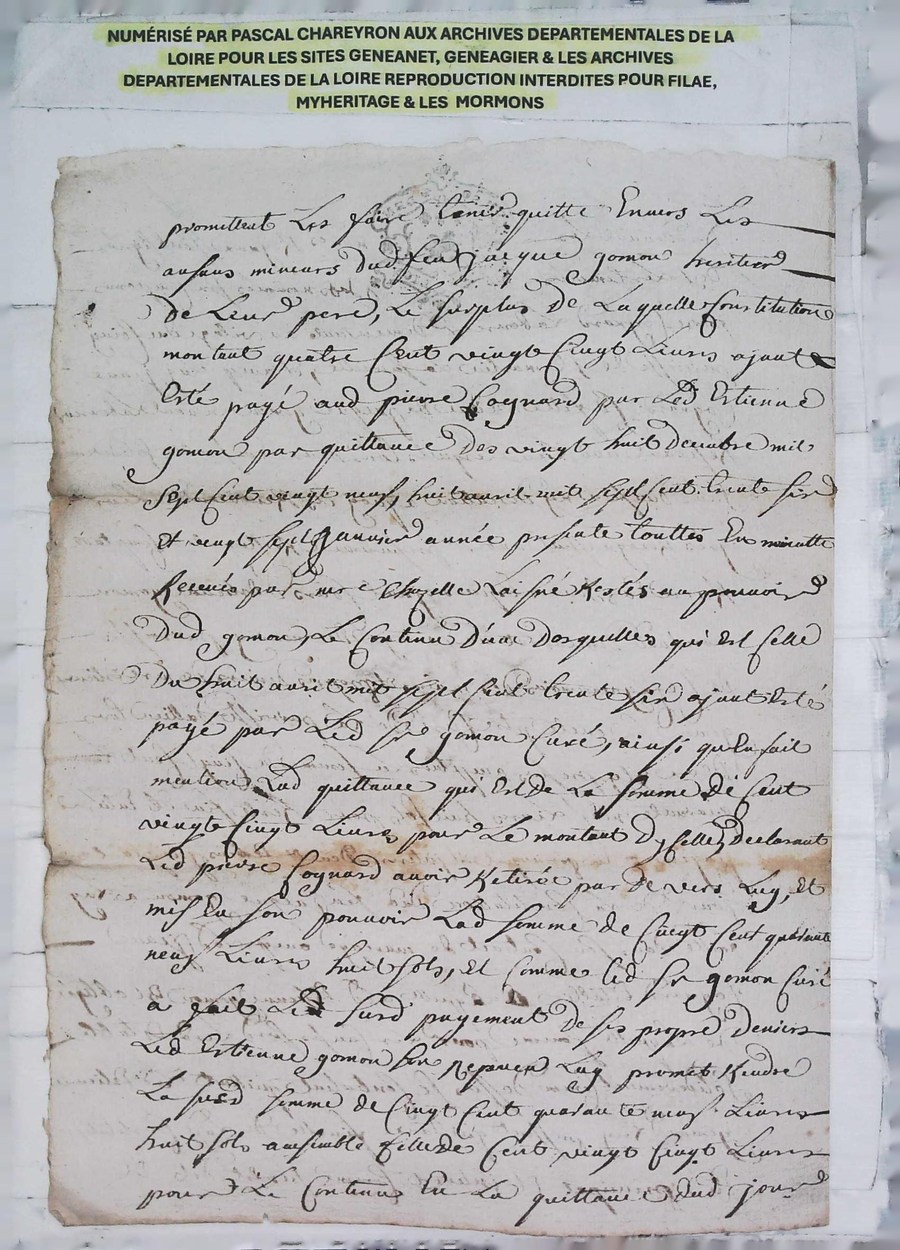 NUMÉRISÉ PAR PASCAL CHAREYRON AUX ARCHIVES DEPARTEMENTALES DE LA
LOIRE POUR LES SITES GENEANET, GENEAGIER & LES ARCHIVES
DEPARTEMENTALES DE LA LOIRE REPRODUCTION INTERDITES POUR FILAE,
MYHERITAGE & LES MORMONS
promittent Les faire tenir quitte Envers Les
anfans mineurs dud feu jacque gomon heritier
de Leur pere, Le surplus de Laquelle Constitution
montant quatre Cent vingt Cinqt Livres ajant
Esté payé aud pierre Cognard par Led Estienne
gomon par quittance des vingt huit decembre mil
sept Cent vingt neuf, huit avril mil sept Cent trente six
Et vingt sept Janvier année presente touttes En minutte
Receués par me Chazelle Laisné Restés au pouvoir
Dud gomon, Le Contenu D'une Desquelles qui Est Celle
Du huit avril mil sept Cent trente six ajant Esté
payé par Led sr gomon Curé, ainsi qu'En fait
mention Lad quittance qui Est de La somme de Cent
vingt Cinqt Livres pour Le montant D'jCelle, declarant
Led pierre Cognard avoir Retiré par de vers Luy, Et
mis En son pouvoir Lad somme de Cinqt Cent quarante
neuf Livres huit sols, Et Comme led sr gomon Curé
a fait Led susd payement de ses propre deniers
Led Estienne gomon son Nepveu Luy promet Rendre
La susd somme de Cinqt Cent quarante neuf Livres
huit sols ansemble Celle de Cent vingt Cinqt Livres
pour Le Contenu En La quittance dud jour